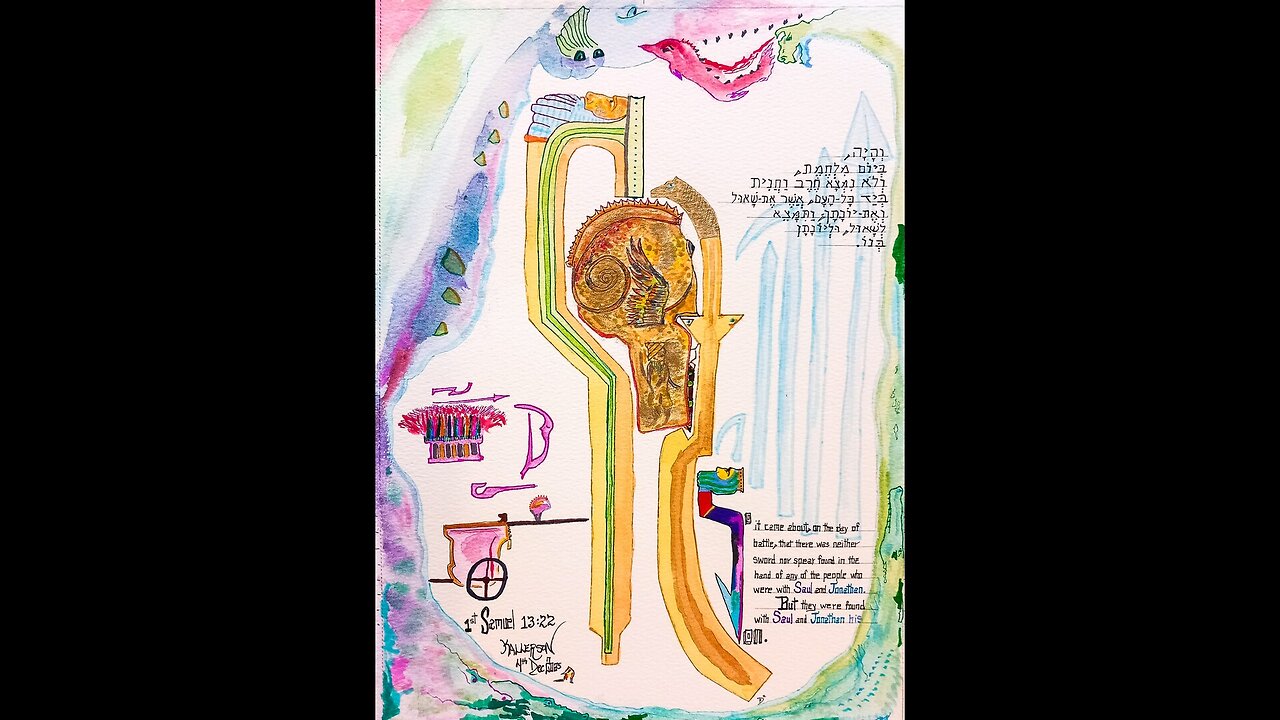 וְהָיָה,
בְּיוֹם מִלְחֶמֶת,
וְלֹא נִמְצָא חֶרֶב וַחֲנִית
בְּיַד כָּל-הָעָם, אֲשֶׁר אֶת-שָׁאוּל
וְאֶת-יוֹנָתָן; וַתִּמָּצֵא
לְשָׁאוּל, וּלְיוֹנָתָן
בְּנוֹ.
it came about, on the day of
battle, that there was neither
sword nor spear found in the
hand of any of the people who
were with Saul and Jonathan.
But they were found
with Saul and Jonathan his
on.
1st Samuel 13:22
4th